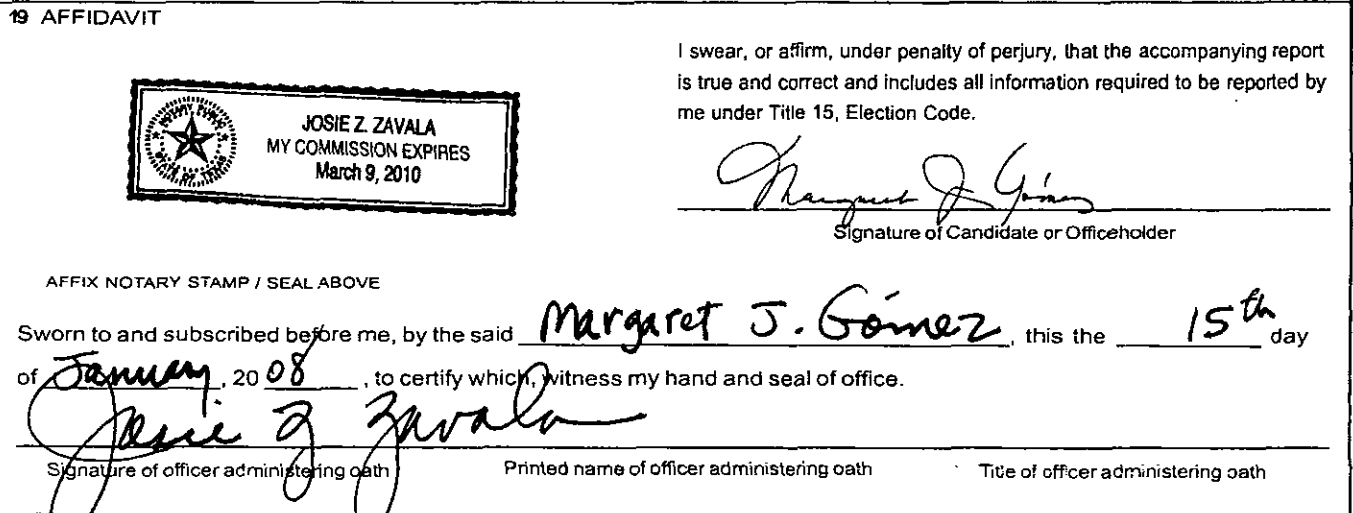 19 AFFIDAVIT
I swear, or affirm, under penalty of perjury, that the accompanying report
is true and correct and includes all information required to be reported by
me under Title 15, Election Code.
NOTARY PUBLIC
STATE OF TEXAS
JOSIE Z. ZAVALA
MY COMMISSION EXPIRES
March 9, 2010
Margaret J. Gómez
Signature of Candidate or Officeholder
AFFIX NOTARY STAMP / SEAL ABOVE
Sworn to and subscribed before me, by the said Margaret J. Gómez, this the 15th day
of January, 2008, to certify which, witness my hand and seal of office.
Josie Z Zavala
Signature of officer administering oath Printed name of officer administering oath Title of officer administering oath